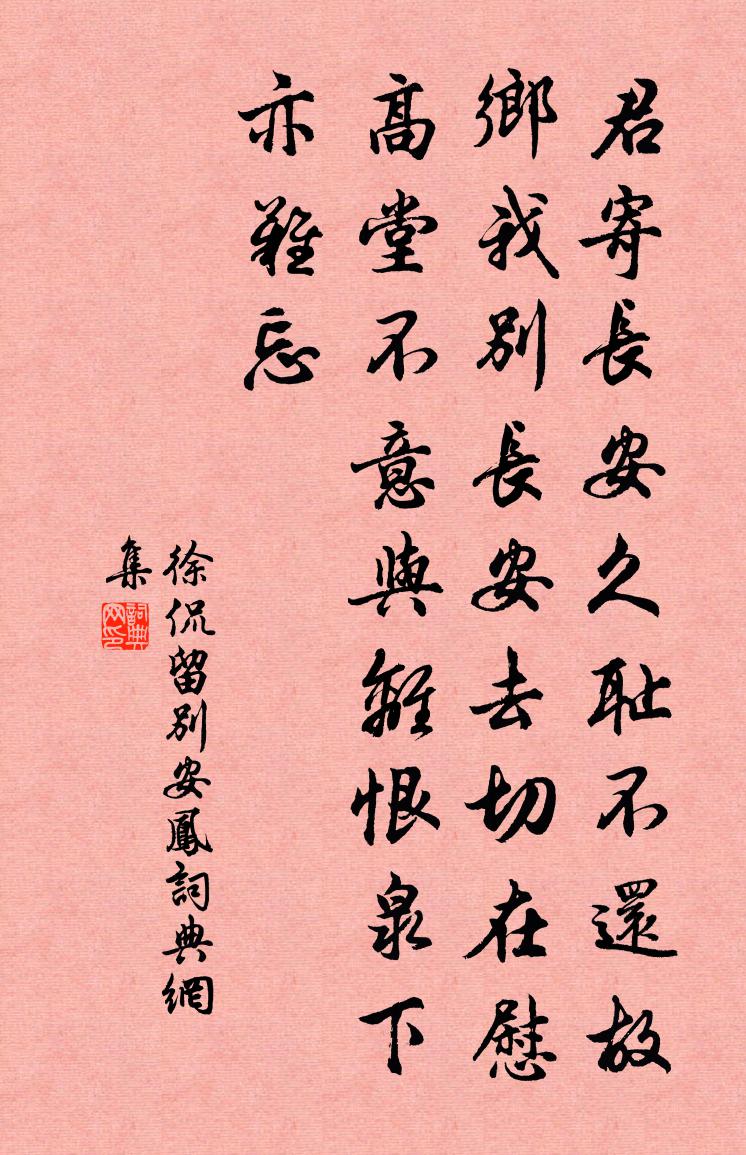 君寄長安久耻不還故
鄉我别長安去切在慰
高堂不意與離恨泉下
亦難忘
徐侃留别安鳳詞典網
集
詞典
网印